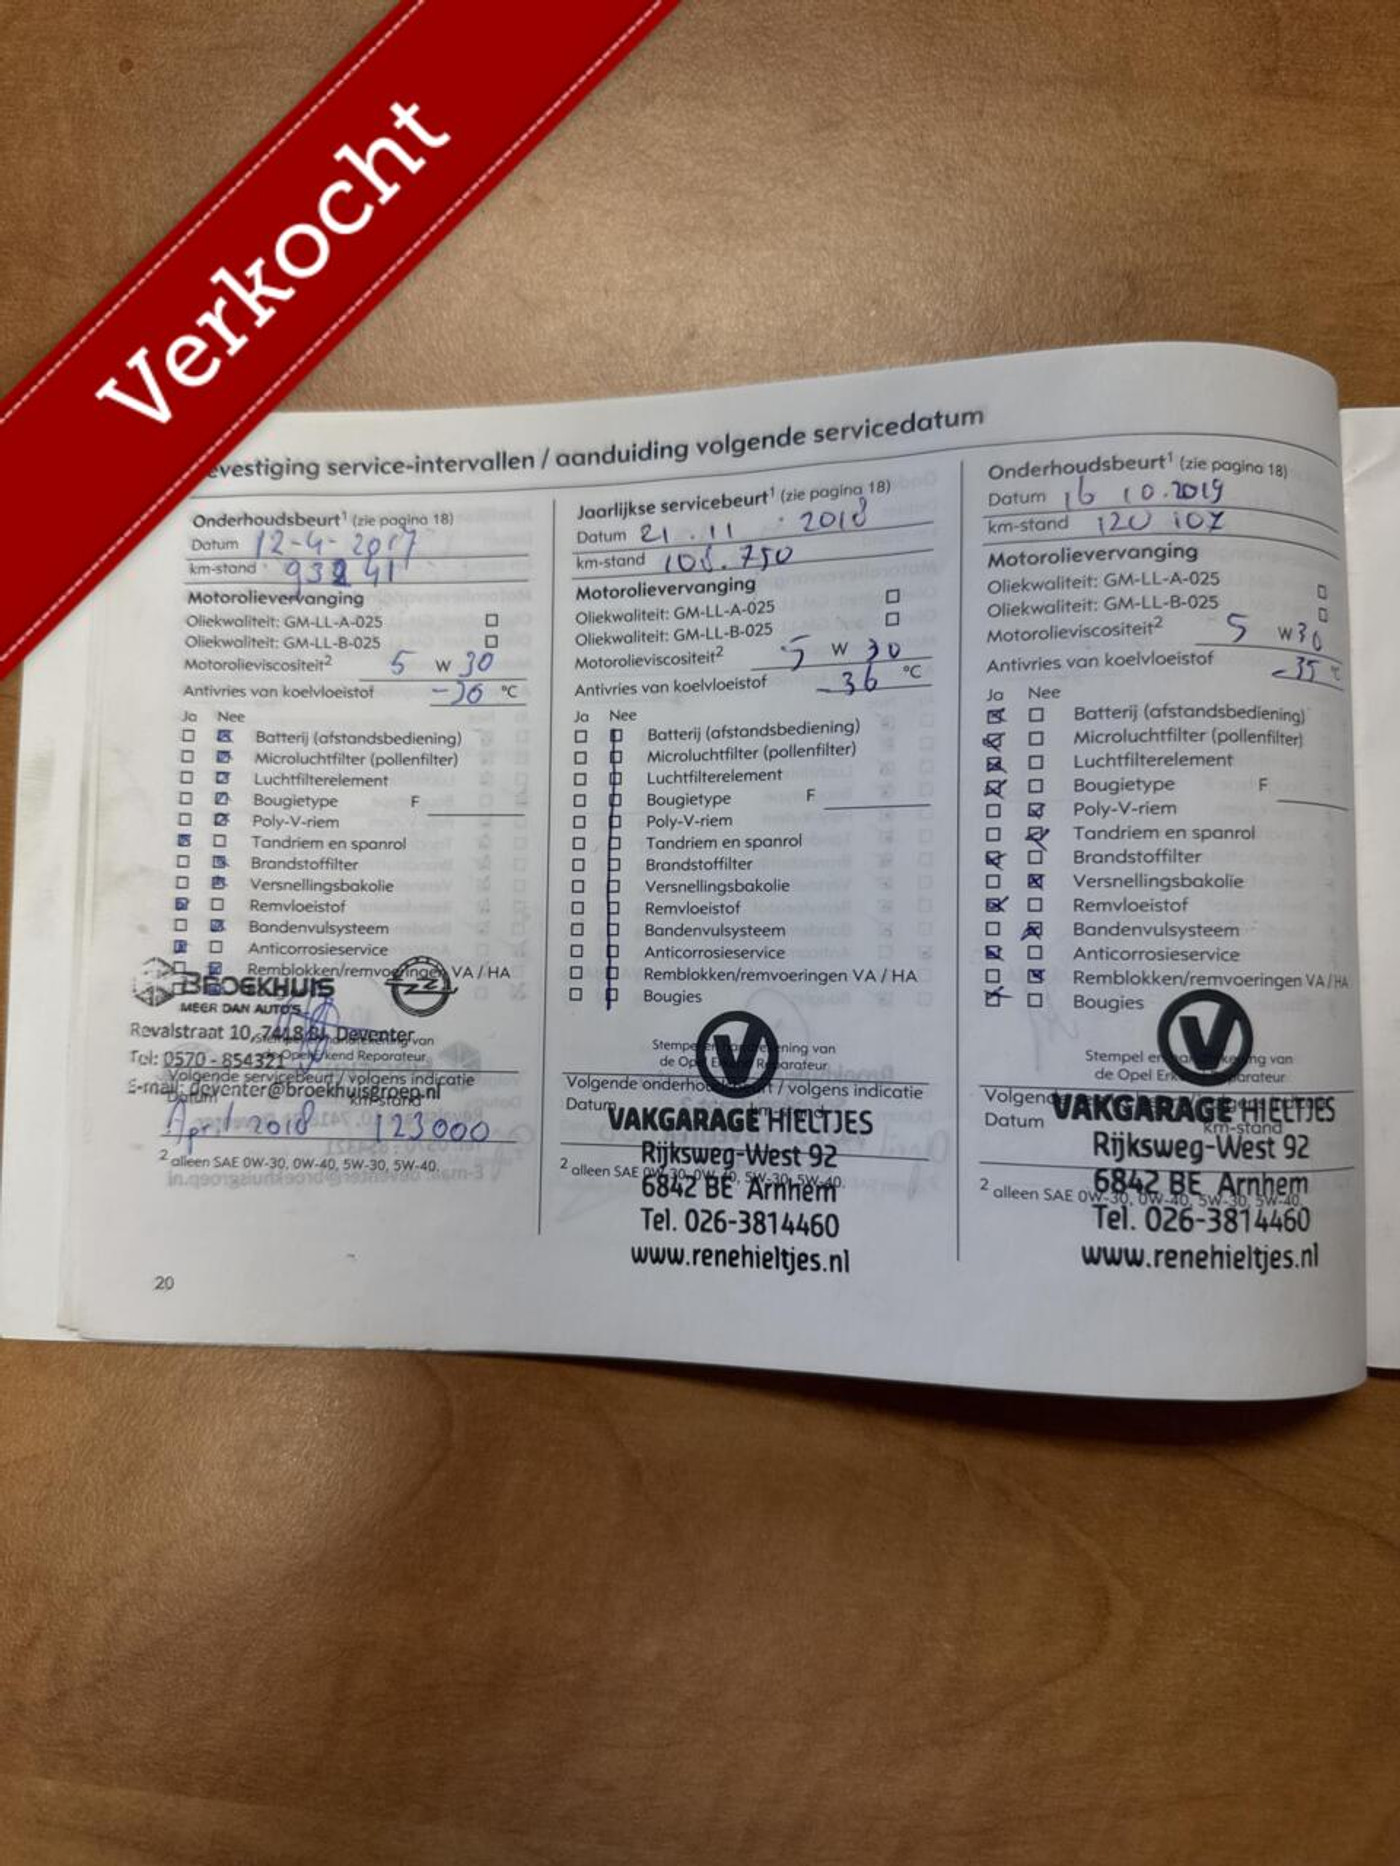 Verkocht
evestiging service-intervallen / aanduiding volgende servicedatum
Onderhoudsbeurt¹ (zie pagina 18)
Datum 12-4-2017
km-stand 93241
Motorolievervanging
Oliekwaliteit: GM-LL-A-025
Oliekwaliteit: GM-LL-B-025
Motorolieviscositeit² 5 W 30
Antivries van koelvloeistof -36 °C
Ja Nee
Batterij (afstandsbediening)
Microluchtfilter (pollenfilter)
Luchtfilterelement
Bougietype F
Poly-V-riem
Tandriem en spanrol
Brandstoffilter
Versnellingsbakolie
Remvloeistof
Bandenvulsysteem
Anticorrosieservice
Remblokken/remvoeringen VA / HA
BROEKHUIS
MEER DAN AUTO'S
Revalstraat 10, 7418 Deventer
Tel: 0570 - 854321
Volgende servicebeurt / volgens indicatie
E-mail: deventer@broekhuisgroep.nl
Datum km-stand
April 2018 123000
² alleen SAE 0W-30, 0W-40, 5W-30, 5W-40.
20
Jaarlijkse servicebeurt¹ (zie pagina 18)
Datum 21.11.2018
km-stand 108.750
Motorolievervanging
Oliekwaliteit: GM-LL-A-025
Oliekwaliteit: GM-LL-B-025
Motorolieviscositeit² 5 W 30
Antivries van koelvloeistof -36 °C
Ja Nee
Batterij (afstandsbediening)
Microluchtfilter (pollenfilter)
Luchtfilterelement
Bougietype F
Poly-V-riem
Tandriem en spanrol
Brandstoffilter
Versnellingsbakolie
Remvloeistof
Bandenvulsysteem
Anticorrosieservice
Remblokken/remvoeringen VA / HA
Bougies
Stempel en handtekening van
de Opel Erkend Reparateur
Volgende onderhoudsbeurt / volgens indicatie
Datum km-stand
VAKGARAGE HIELTJES
Rijksweg-West 92
² alleen SAE 0W-30, 0W-40, 5W-30, 5W-40.
6842 BE Arnhem
Tel. 026-3814460
www.renehieltjes.nl
Onderhoudsbeurt¹ (zie pagina 18)
Datum 16 10.2019
km-stand 120 107
Motorolievervanging
Oliekwaliteit: GM-LL-A-025
Oliekwaliteit: GM-LL-B-025
Motorolieviscositeit² 5 W 30
Antivries van koelvloeistof -35 °C
Ja Nee
Batterij (afstandsbediening)
Microluchtfilter (pollenfilter)
Luchtfilterelement
Bougietype F
Poly-V-riem
Tandriem en spanrol
Brandstoffilter
Versnellingsbakolie
Remvloeistof
Bandenvulsysteem
Anticorrosieservice
Remblokken/remvoeringen VA / HA
Bougies
Stempel en handtekening van
de Opel Erkend Reparateur
Volgende
Datum km-stand
VAKGARAGE HIELTJES
Rijksweg-West 92
² alleen SAE 0W-30, 0W-40, 5W-30, 5W-40.
6842 BE Arnhem
Tel. 026-3814460
www.renehieltjes.nl